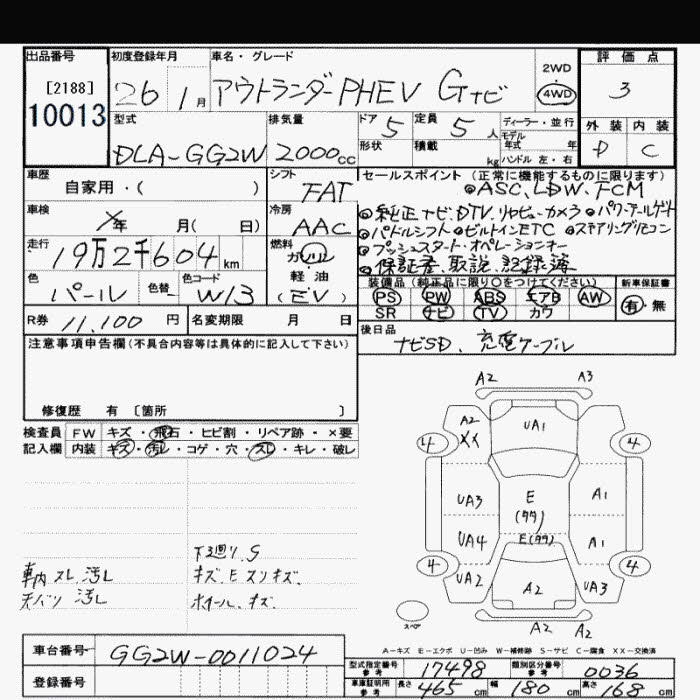 出品番号
[2188]
10013
初度登録年月
26 1月
車名・グレード
アウトランダーPHEV Gナビ
2WD
4WD
評価点
3
外装 内装
D C
型式
DLA-GG2W
排気量
2000cc
ドア
5
形状
定員
5人
積載
kg
ディーラー・並行
モデル年式 年
ハンドル 左・右
車歴
自家用・( )
車検
年 月( 日)
走行
19万2千604km
色
パール
色替
-
色コード
W13
シフト
FAT
冷房
AAC
燃料
ガソリン
軽・油
(EV)
セールスポイント(正常に機能するものに限ります)
◎ASC、LDW、FCM
◎純正ナビ、DTV、リヤビューカメラ ◎パワーテールゲート
◎パドルシフト ◎ビルトインETC ◎ステアリングリモコン
◎プッシュスタート・オペレーションキー
◎保証書、取説、記録簿
装備品(純正品に限り○をつけてください)
PS PW ABS エアB AW
SR ナビ TV カワ
新車保証書
有・無
R券 11,100円
名変期限 月 日
後日品
ナビSD、充電ケーブル
注意事項申告欄(不具合内容等は具体的に記入して下さい)
修復歴 有 〔箇所 〕
検査員
記入欄
FW キズ・飛石・ヒビ割・リペア跡・×要
内装 キズ・汚レ・コゲ・穴・スレ・キレ・破レ
車内スレ、汚レ
天バリ汚レ
下廻り、S
キズ、Eスリキズ、
ホイール、キズ、
A2 A3
A2
XX
UA1
4 4
UA3
E
(タタ)
A1
UA4
E(タタ)
A1
4 4
UA2
A2
UA3
スペア
A2 A2
A-キズ E-エクボ U-凹み W-補修跡 S-サビ C-腐食 XX-交換済
車台番号
GG2W-0011024
登録番号
型式指定番号
参考
17498
類別区分番号
参考
0036
車庫証明用
参考
長さ 465cm
幅 180cm
高さ 168cm